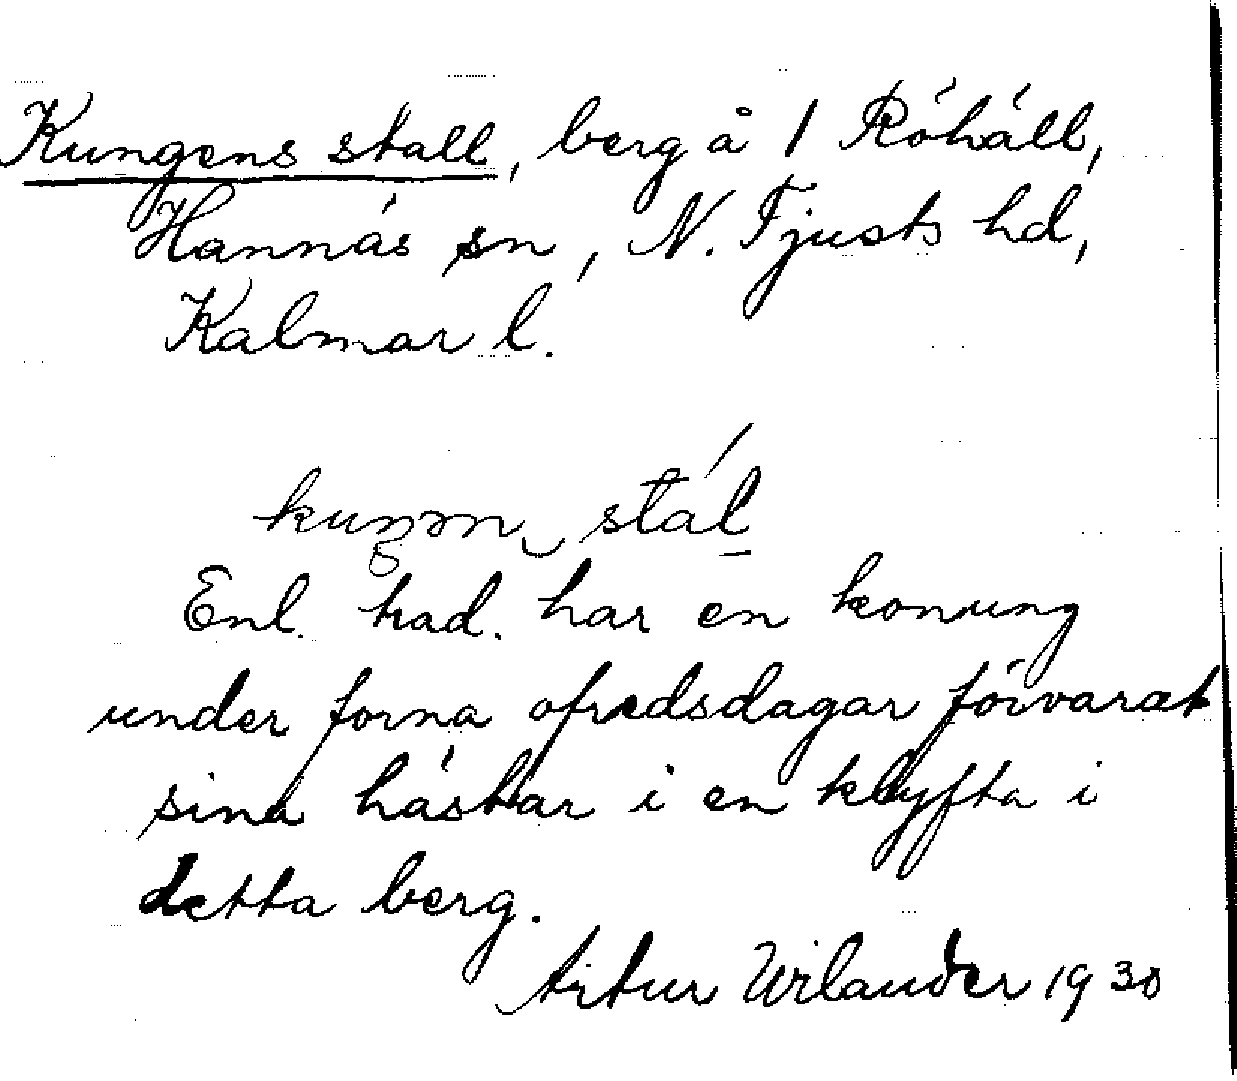 Kungens stall, berg å 1 Röhäll,
Hannäs sn, N. Tjusts hd,
Kalmar l.
stál
Enl. trad. har en konung
under forna ofredsdagar förvarat
sina hästar i en klyfta i
detta berg.
Artur Wilander 1930